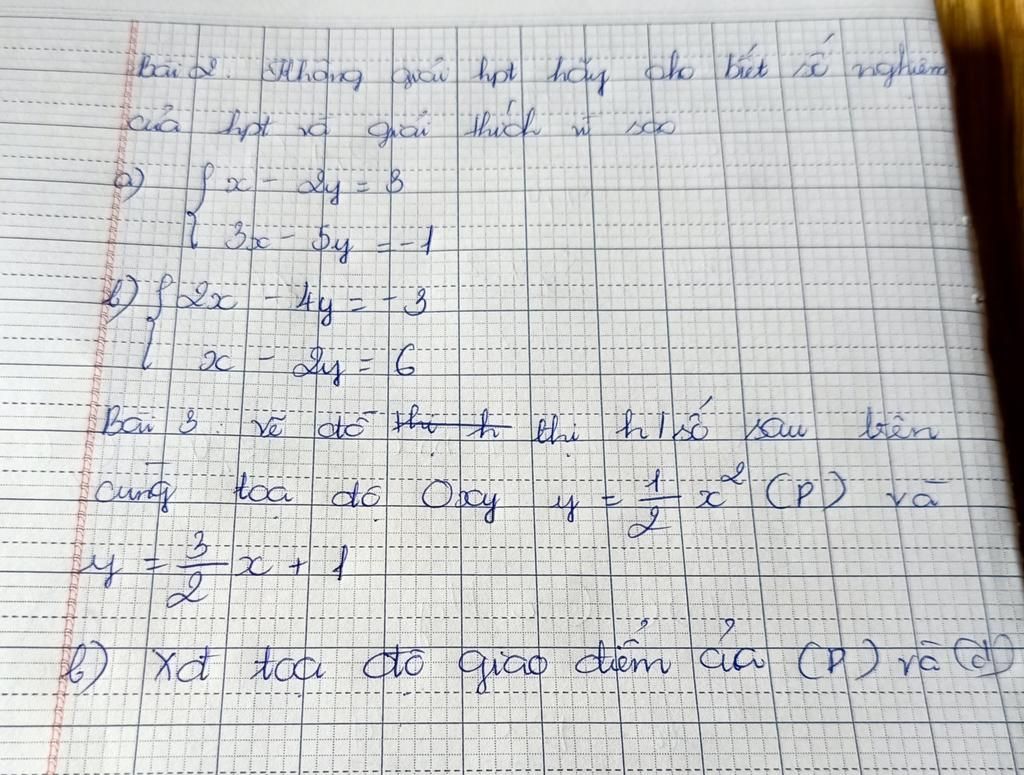 Bài 2. Không giải hpt hãy cho biết số nghiệm
của hpt và giải thích vì sao
a) { x - 2y = 3
3x - 5y = -1
b) { 2x - 4y = -3
x - 2y = 6
Bài 3. vẽ đồ thị h thị h/số sau trên
cùng toạ độ Oxy y = 1/2 x² (P) và
y = 3/2 x + 1
b) xđ toạ độ giao điểm của (P) và (d)